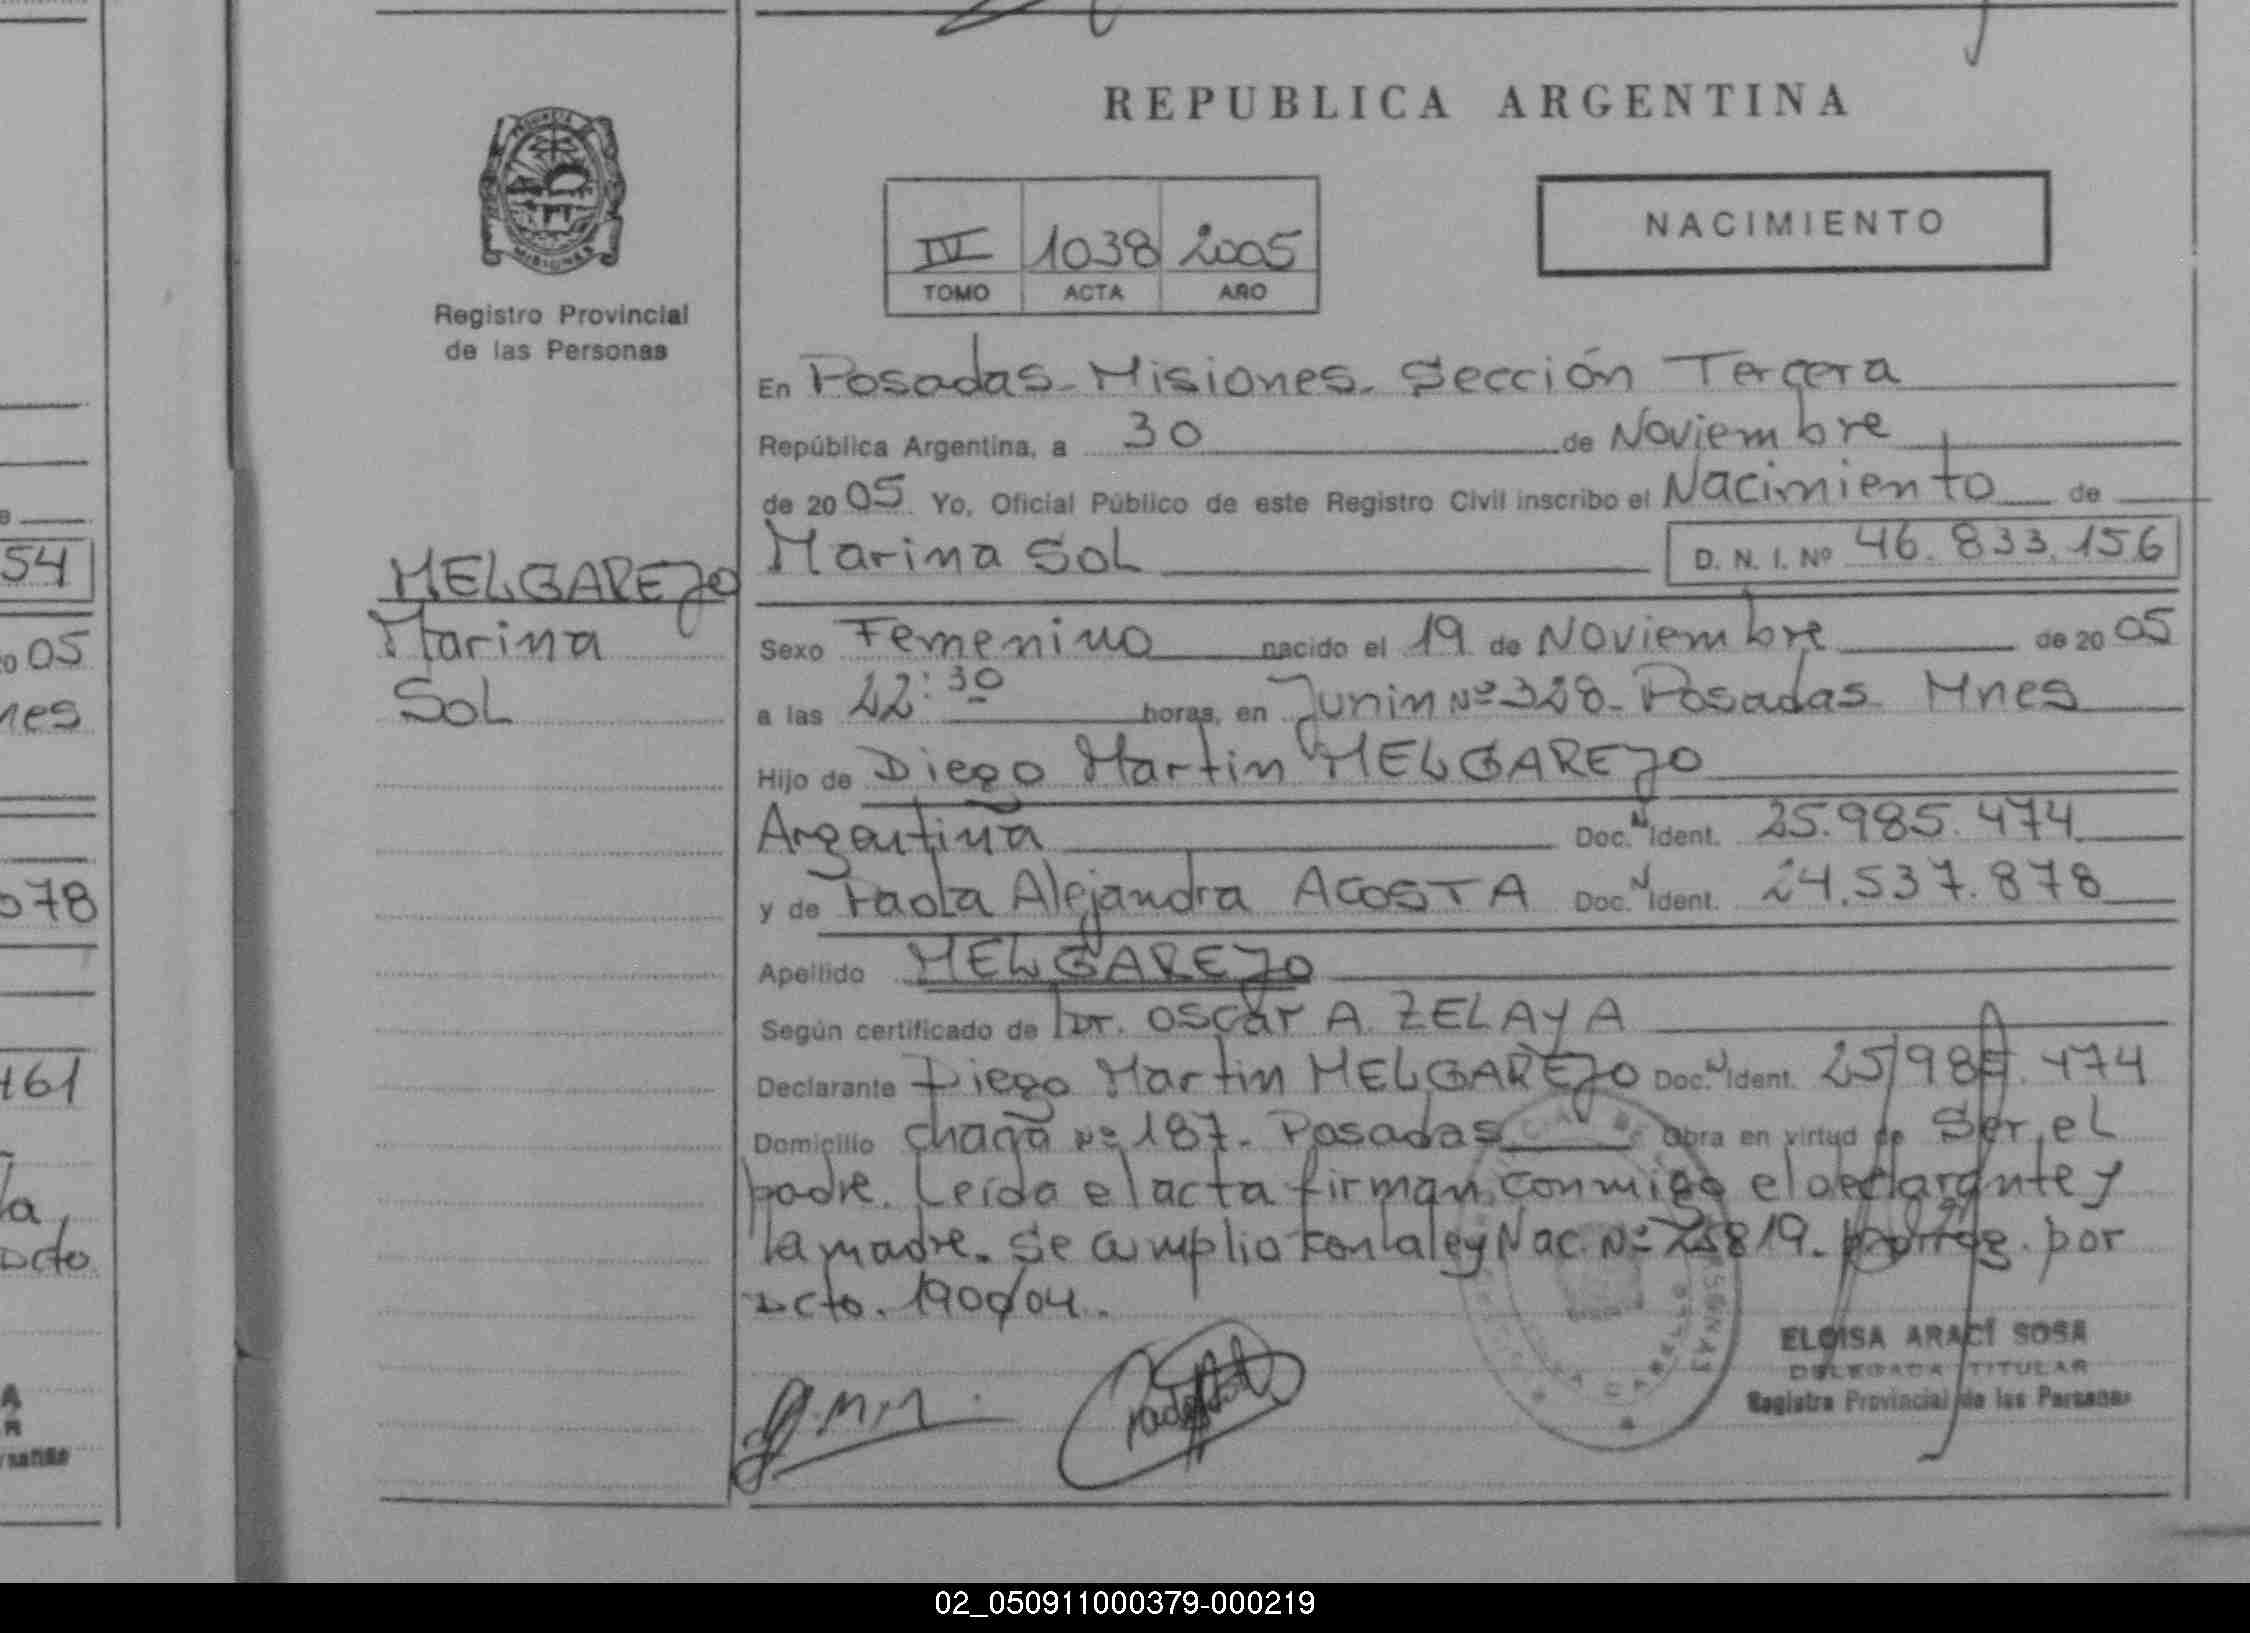 REPUBLICA ARGENTINA
PROVINCIA DE
MISIONES
Registro Provincial
de las Personas
IV 1038 2005
TOMO ACTA AÑO
NACIMIENTO
En Posadas - Misiones. Sección Tercera
República Argentina, a 30 de Noviembre
de 20 05. Yo, Oficial Público de este Registro Civil inscribo el Nacimiento de
Marina Sol D. N. I. Nº 46.833.156
MELGAREJO
Marina
Sol
Sexo Femenino nacido el 19 de Noviembre de 20 05
a las 22:30 horas, en Junin Nº 328 - Posadas Mnes
Hijo de Diego Martin MELGAREJO
Argentina Doc. N Ident. 25.985.474
y de Paola Alejandra ACOSTA Doc. N Ident. 24.537.878
Apellido MELGAREJO
Según certificado de Dr. Oscar A. ZELAYA
Declarante Diego Martin MELGAREJO Doc. N Ident. 25.985.474
Domicilio Nº 187. Posadas Obra en virtud de Ser el
padre. Leída el acta firman conmigo el declarante y
la madre. Se cumplio con la ley Nac. Nº 25819. por
Dcto. 1900/04.
ELOISA ARACÍ SOSA
DELEGADA TITULAR
Registro Provincial de las Personas
54
05
nes
078
461
la
Dcto
02_050911000379-000219